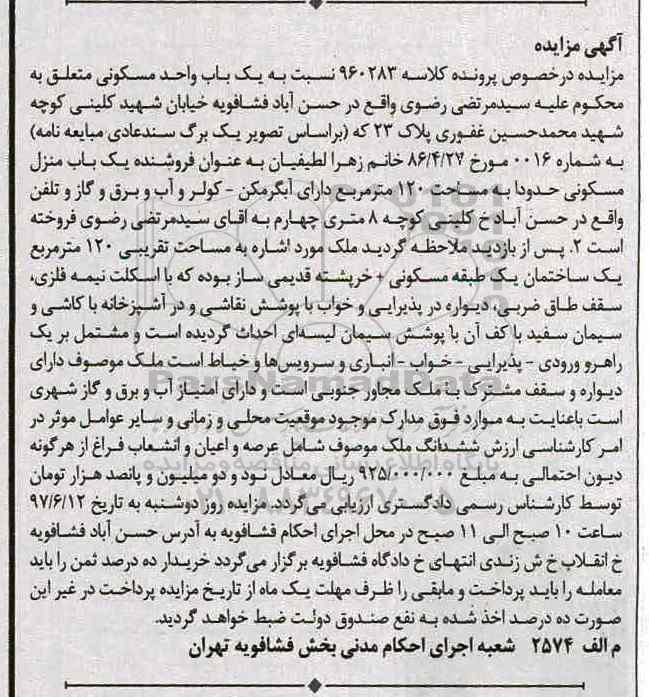 آگهی مزایده
مزایده درخصوص پرونده کلاسه ۹۶۰۲۸۳ نسبت به یک باب واحد مسکونی متعلق به
محکوم علیه سیدمرتضی رضوی واقع در حسن آباد فشافویه خیابان شهید کلینی کوچه
شهید محمدحسین غفوری پلاک ۲۳ که (براساس تصویر یک برگ سندعادی مبایعه نامه)
به شماره ۰۰۱۶ مورخ ۸۶/۴/۲۷ خانم زهرا لطیفیان به عنوان فروشنده یک باب منزل
مسکونی حدودا به مساحت ۱۲۰ مترمربع دارای آبگرمکن - کولر و آب و برق و گاز و تلفن
واقع در حسن آباد خ کلینی کوچه ۸ متری چهارم به اقای سیدمرتضی رضوی فروخته
است ۲. پس از بازدید ملاحظه گردید ملک مورد اشاره به مساحت تقریبی ۱۲۰ مترمربع
یک ساختمان یک طبقه مسکونی + خرپشته قدیمی ساز بوده که با اسکلت نیمه فلزی،
سقف طاق ضربی، دیواره در پذیرایی و خواب با پوشش نقاشی و در آشپزخانه با کاشی و
سیمان سفید با کف آن با پوشش سیمان لیسه‌ای احداث گردیده است و مشتمل بر یک
راهرو ورودی - پذیرایی - خواب - انباری و سرویس‌ها و خیاط است ملک موصوف دارای
دیواره و سقف مشترک با ملک مجاور جنوبی است و دارای امتیاز آب و برق و گاز شهری
است باعنایت به موارد فوق مدارک موجود موقعیت محلی و زمانی و سایر عوامل موثر در
امر کارشناسی ارزش ششدانگ ملک موصوف شامل عرصه و اعیان و انشعاب فراغ از هرگونه
دیون احتمالی به مبلغ ۹۲۵/۰۰۰/۰۰۰ ریال معادل نود و دو میلیون و پانصد هزار تومان
توسط کارشناس رسمی دادگستری ارزیابی می‌گردد. مزایده روز دوشنبه به تاریخ ۹۷/۶/۱۲
ساعت ۱۰ صبح الی ۱۱ صبح در محل اجرای احکام فشافویه به آدرس حسن آباد فشافویه
خ انقلاب خ ش زندی انتهای خ دادگاه فشافویه برگزار می‌گردد خریدار ده درصد ثمن را باید
معامله را باید پرداخت و مابقی را ظرف مهلت یک ماه از تاریخ مزایده پرداخت در غیر این
صورت ده درصد اخذ شده به نفع صندوق دولت ضبط خواهد گردید.
م الف ۲۵۷۴ شعبه اجرای احکام مدنی بخش فشافویه تهران
ParsNamadData